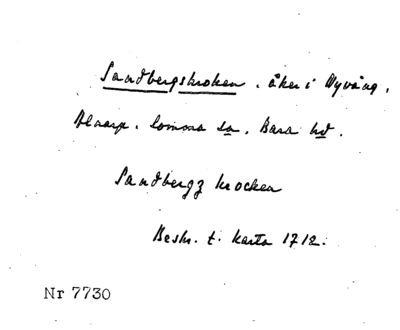 Sandbergskroken. åker i Nyvång,
Alnarp. Lomma sn. Bara hd.
Sandbergz krocken
Beskr. t. karta 1712.
Nr 7730